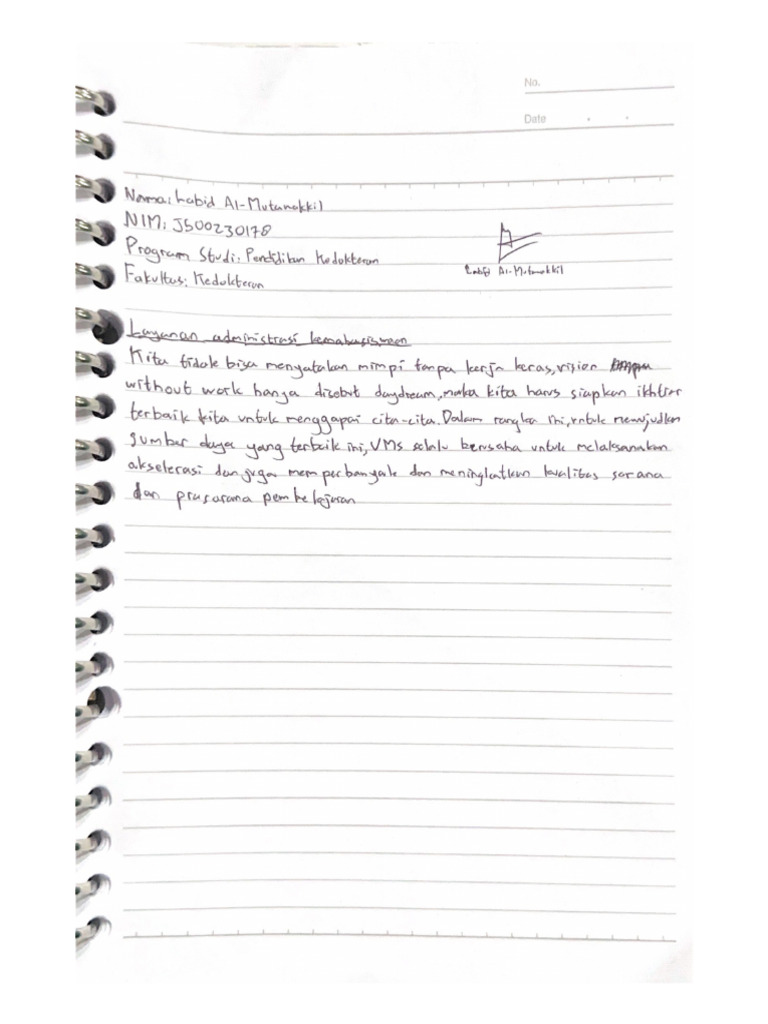 No.
Date
Nama: Labid Al-Mutawakkil
NIM: J500230178
Program Studi: Pendidikan Kedokteran
Labid Al-Mutawakkil
Fakultas: Kedokteran
Layanan administrasi kemahasiswaan
Kita tidak bisa menyatakan mimpi tanpa kerja keras, vision
without work hanya disebut daydream, maka kita harus siapkan ikhtiar
terbaik kita untuk menggapai cita-cita. Dalam rangka ini, untuk mewujudkan
sumber daya yang terbaik ini, UMS selalu berusaha untuk melaksanakan
akselerasi dan juga memperbanyak dan meningkatkan kualitas sarana
dan prasarana pembelajaran